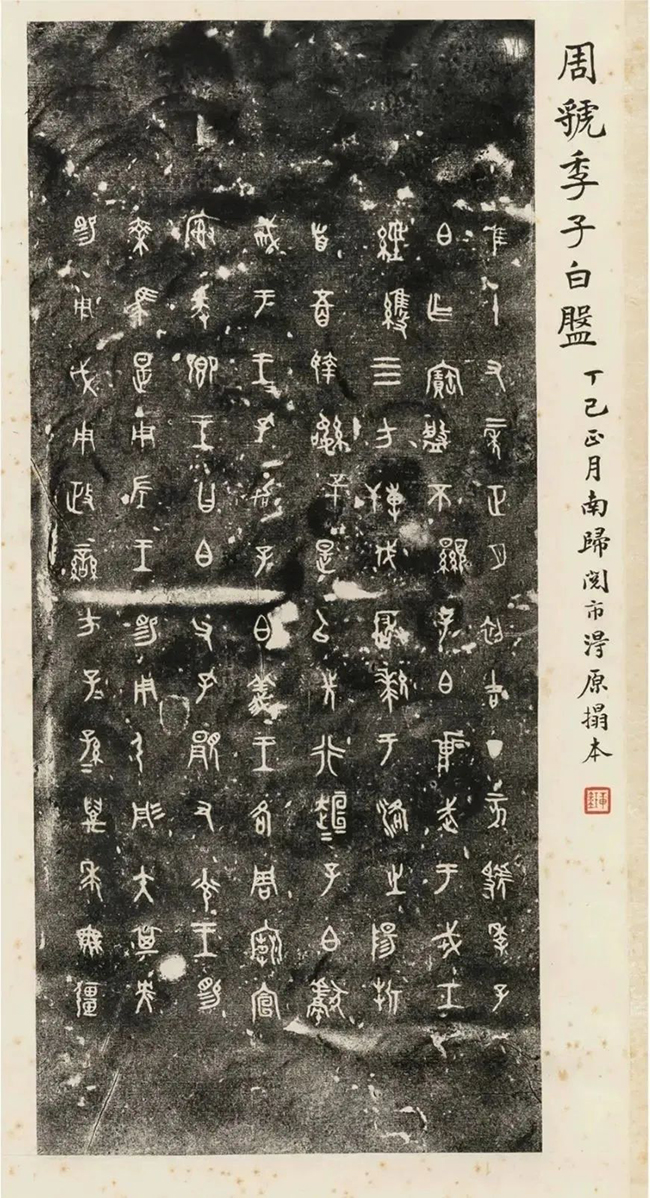 周虢季子白盤 丁巳正月南歸閱市得原搨本
隹十又二年正月初吉丁亥虢季子
白乍寶盤不顯子白壯武于戎工
經維四方搏伐玁狁于洛之陽折
首五百執訊五十是以先行桓桓子白獻
馘于王王孔加子白義王各周廟宣
榭爰鄉王曰白父孔顯又光王賜
乘馬是用左王賜用弓彤矢其央
賜用戉用政蠻方子子孫孫萬年無疆